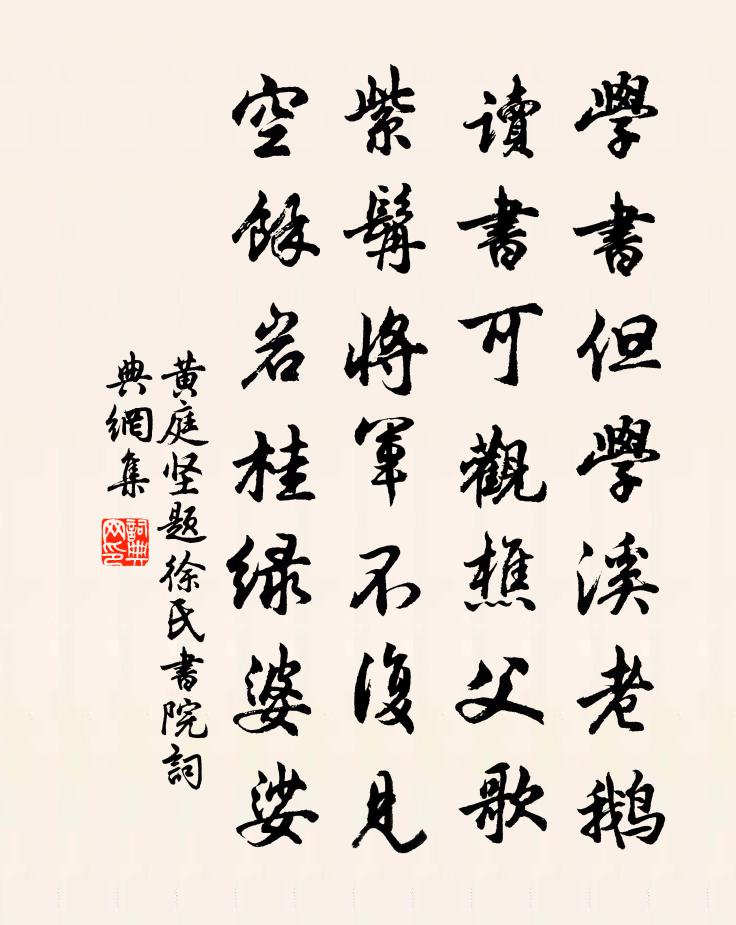 學書但學溪老鵝
讀書可觀樵父歌
紫髯將軍不復見
空餘岩桂绿婆娑
黄庭坚题徐氏書院詞
典網集
詞典網印